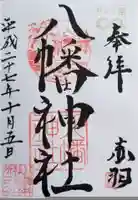 奉拝
赤羽
八幡神社
平成二十七年十月五日